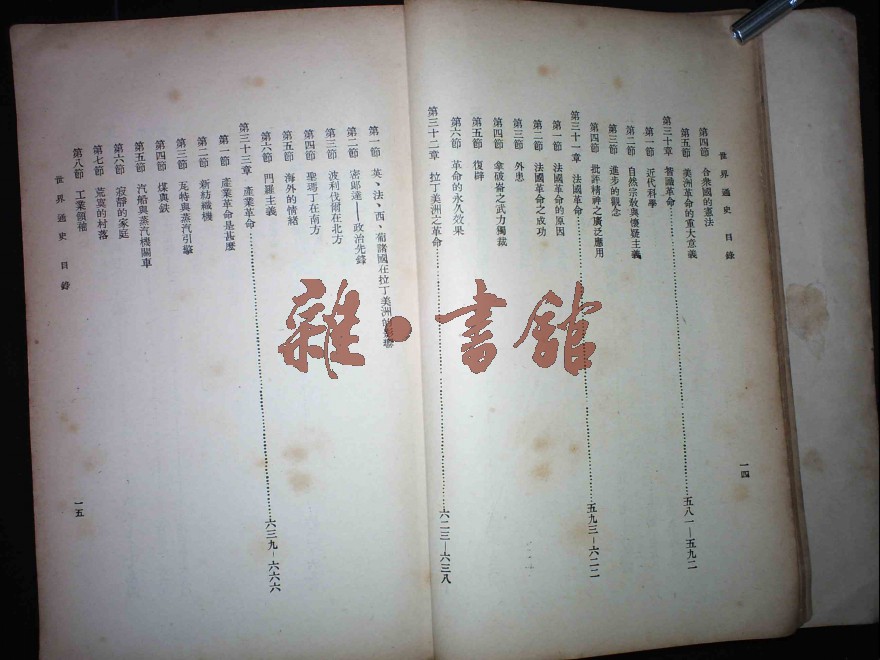 世界通史 目錄
第四節 合衆國的憲法
第五節 美洲革命的重大意義
第三十章 智識革命 五八一—五九二
第一節 近代科學
第二節 自然宗敎與懷疑主義
第三節 進步的觀念
第四節 批評精神之廣泛應用
第三十一章 法國革命 五九三—六二二
第一節 法國革命的原因
第二節 法國革命之成功
第三節 外患
第四節 拿破崙之武力獨裁
第五節 復辟
第六節 革命的永久效果
第三十二章 拉丁美洲之革命 六二三—六三八
一四
第一節 英、法、西、葡諸國在拉丁美洲的
第二節 密郎達——政治先鋒
第三節 波利伐爾在北方
第四節 聖瑪丁在南方
第五節 海外的情緒
第六節 門羅主義
第三十三章 產業革命 六三九—六六六
第一節 產業革命是甚麼
第二節 新紡織機
第三節 瓦特與蒸汽引擎
第四節 煤與鉄
第五節 汽船與蒸汽機關車
第六節 寂靜的家庭
第七節 荒寞的村落
第八節 工業領袖
世界通史 目錄
一五
雜·書館